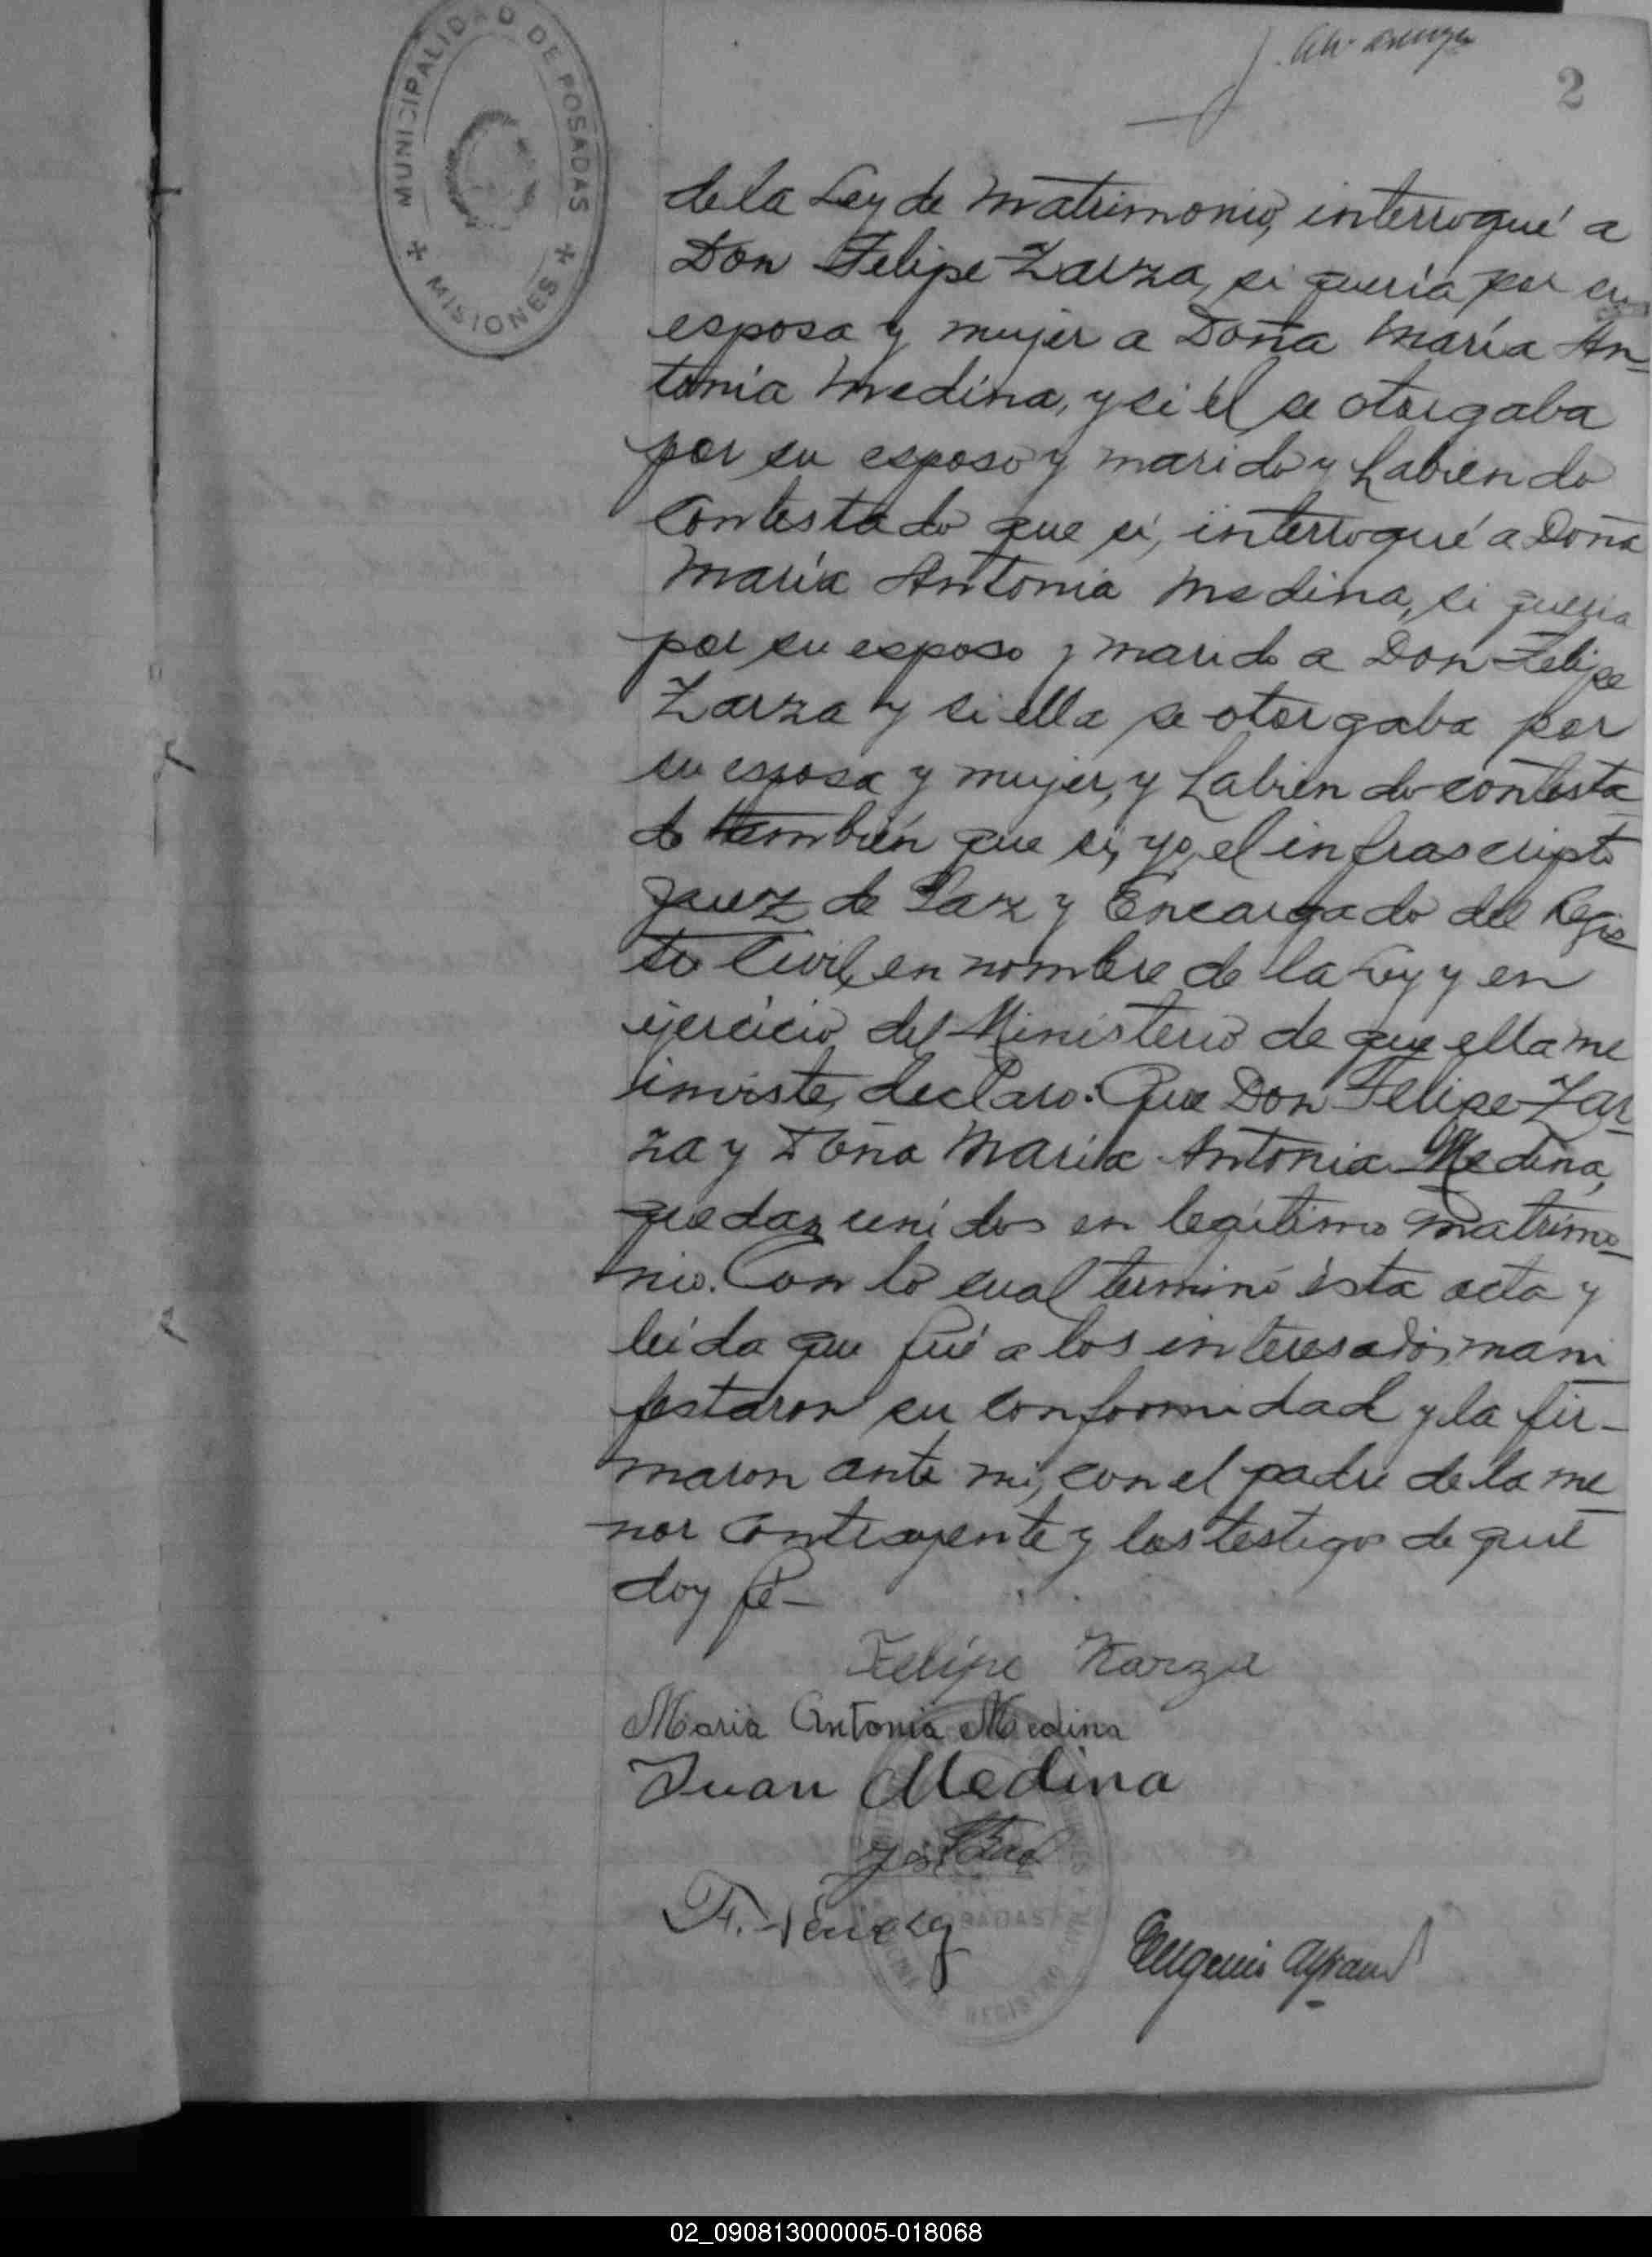 2
MUNICIPALIDAD DE POSADAS
MISIONES
de la Ley de Matrimonio, interrogué a
Don Felipe Zarza, si quería por su
esposa y mujer a Doña María An-
tonia Medina, y si él se otorgaba
por su esposo y marido y habiendo
contestado que sí, interrogué a Doña
María Antonia Medina, si quería
por su esposo y marido a Don Felipe
Zarza y si ella se otorgaba por
su esposa y mujer, y habiendo contesta-
do también que sí, yo, el infrascripto
Juez de Paz y Encargado del Regis-
tro Civil, en nombre de la Ley y en
ejercicio del Ministerio de que ella me
inviste, declaro: Que Don Felipe Zar-
za y Doña María Antonia Medina,
quedan unidos en legítimo matrimo-
nio. Con lo cual terminó ésta acta y
leída que fué a los interesados, mani-
festaron su conformidad y la fir-
maron ante mi, con el padre de la me-
nor contrayente y los testigos de que
doy fé-
Felipe Zarza
Maria Antonia Medina
Juan Medina
F.
Eugenio
POSADAS
REGISTRO
02_090813000005-018068